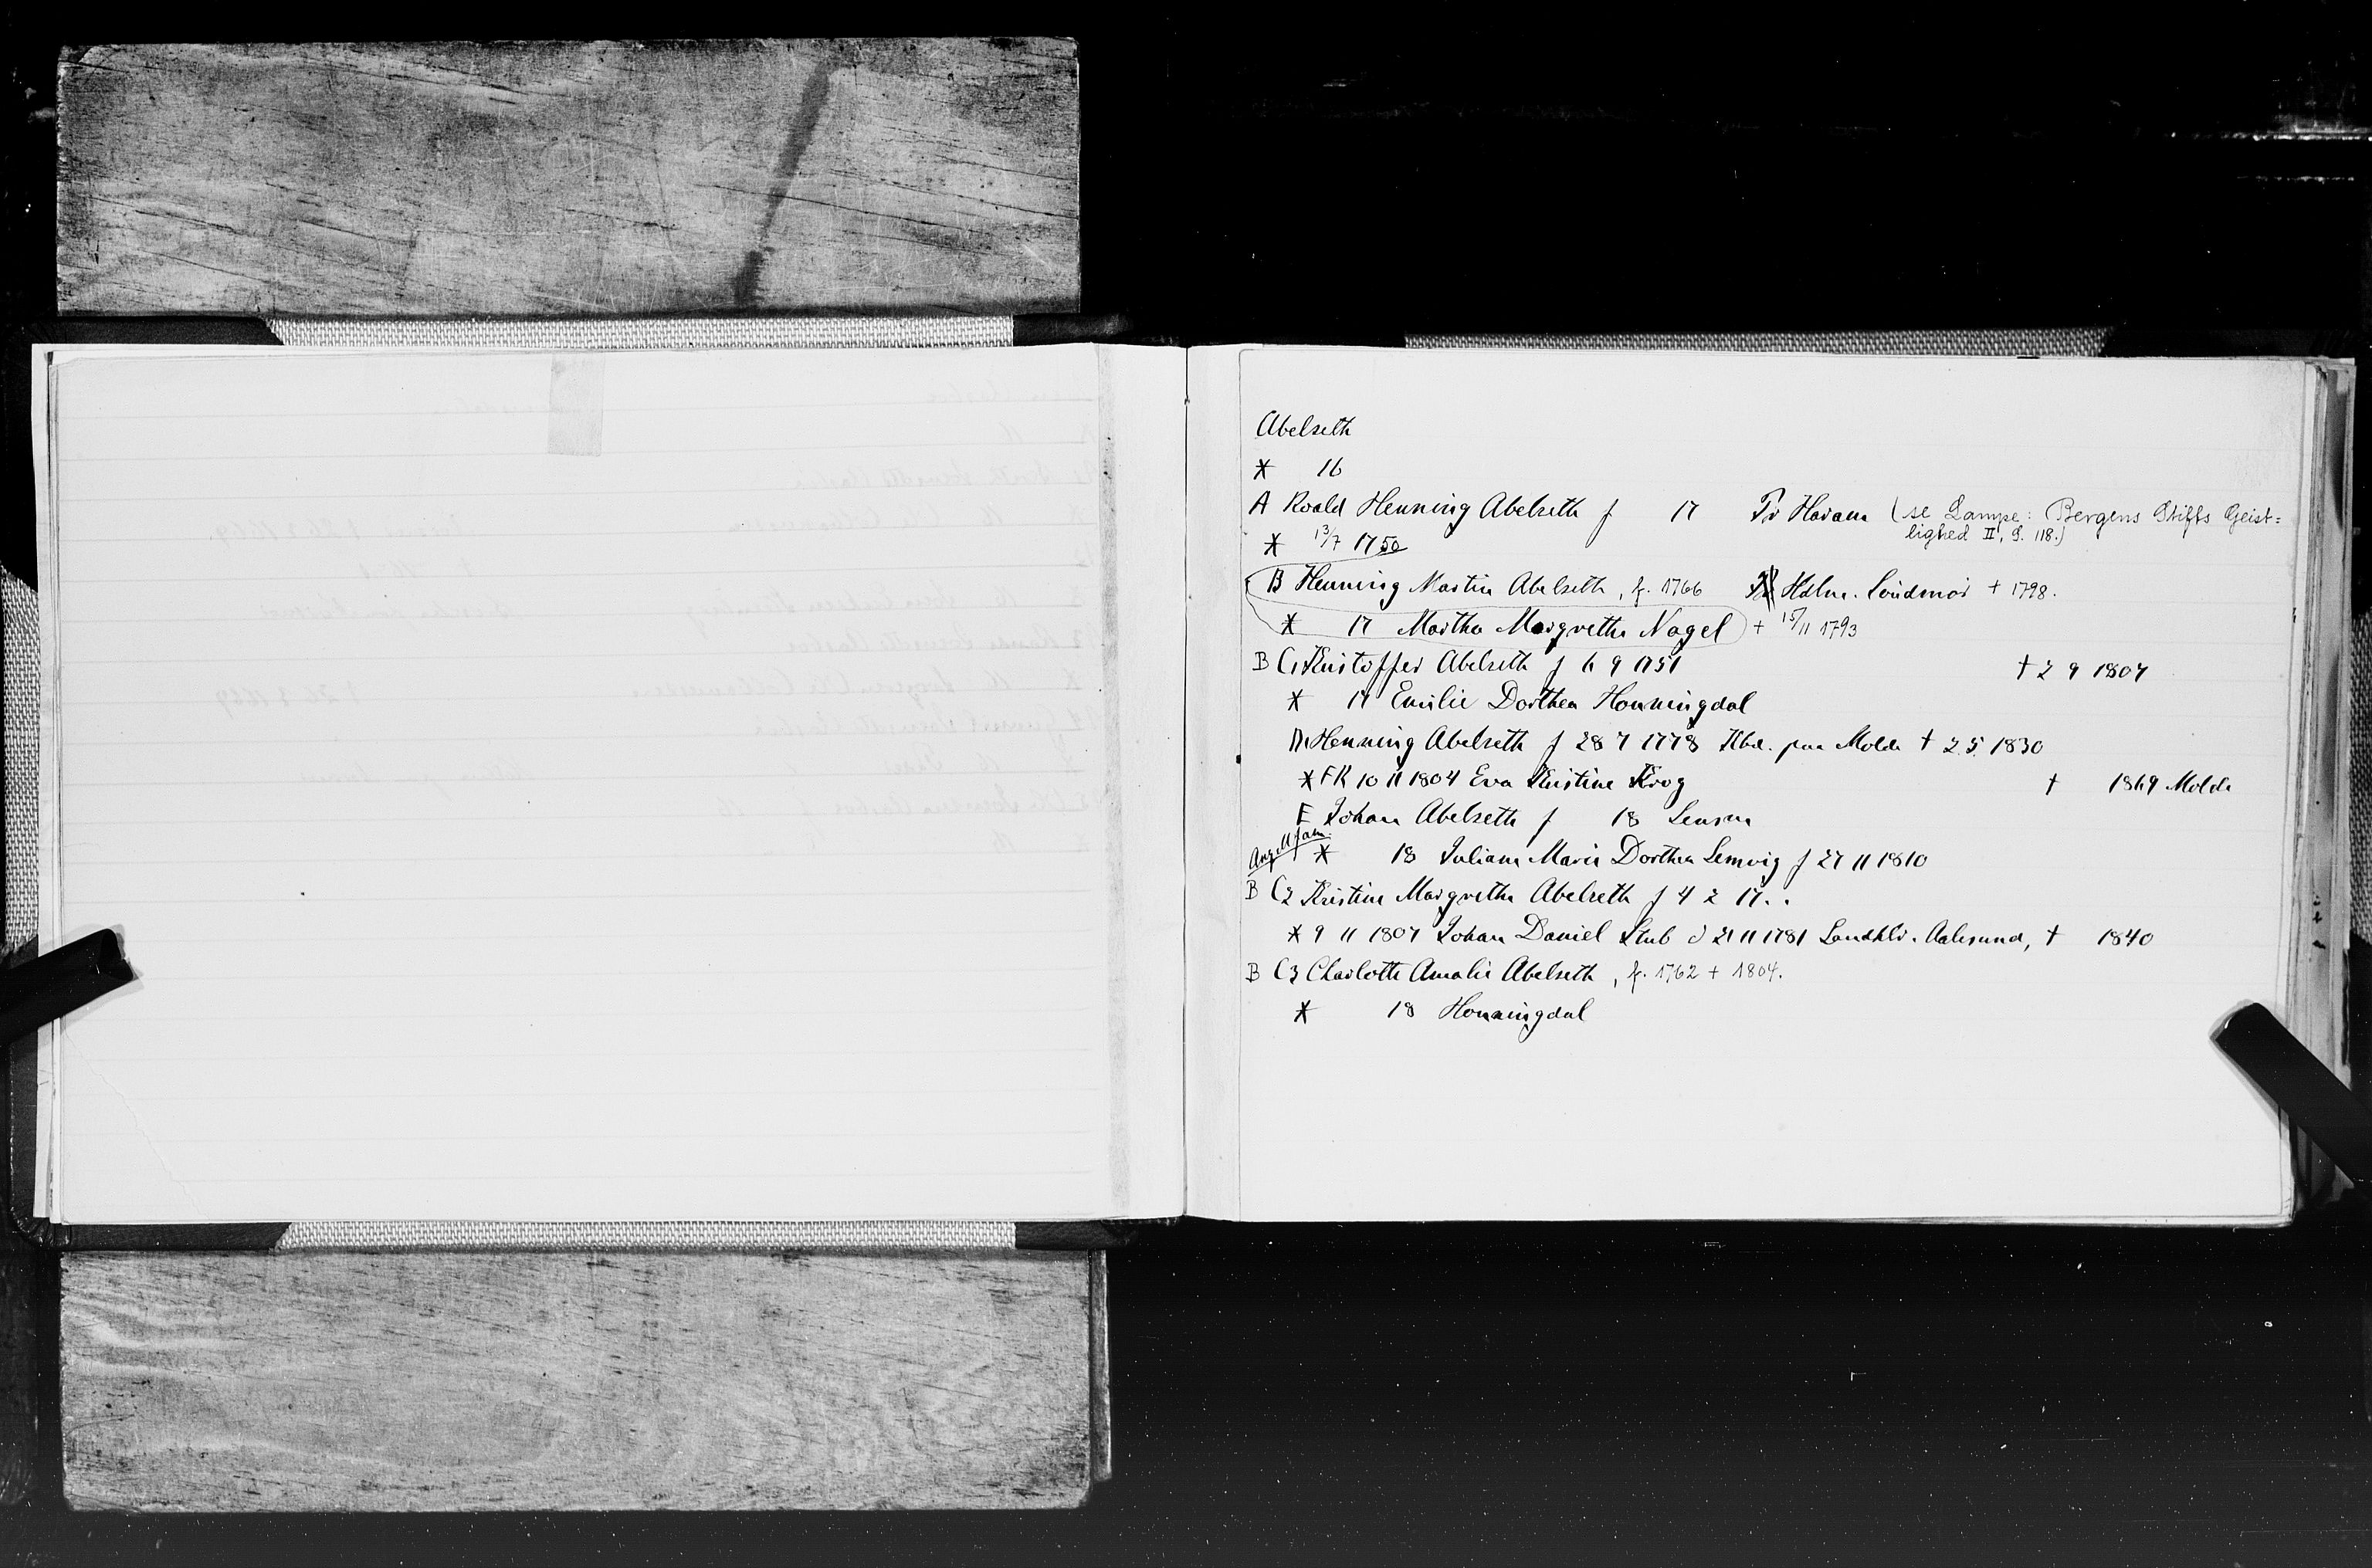 Abelseth
* 16
A Roald Henning Abelseth f 17 Pr Haram (se Lampe: Bergens Stifts Geist=
lighed II, S. 118.)
* 13/7 1750
B Henning Martin Abelseth, f. 1766 Hdlm. Söndmör + 1798.
* 17 Martha Margrethe Nagel + 15/11 1793
B C1 Kristoffer Abelseth f 6 9 1751 † 2 9 1807
* 17 Emilie Dorthea Honningdal
D1 Henning Abelseth f 28 7 1778 Kbd. paa Molde † 2 5 1830
* FK 10 11 1804 Eva Kristine Krog † 1869 Molde
E Johan Abelseth f 18 Lensm
Angell fam.
* 18 Juliane Marie Dorthea Lemvig f 27 11 1810
B C2 Kristine Margrethe Abelseth f 4 2 17..
* 9 11 1807 Johan Daniel Stub d 21 11 1781 Landhdlr. Aalesund, † 1840
B C3 Charlotte Amalie Abelseth, f. 1762 + 1804.
* 18 Honningdal